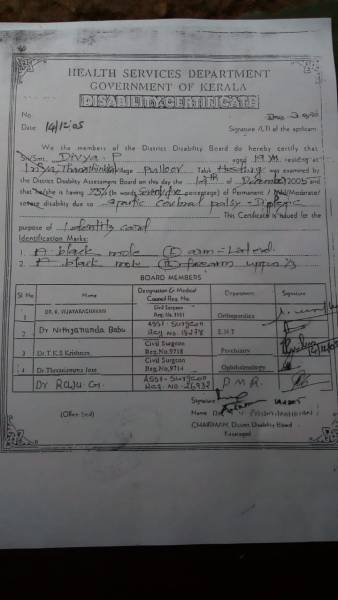 HEALTH SERVICES DEPARTMENT
GOVERNMENT OF KERALA
DISABILITY CERTIFICATE
No.
Date: 14/12/05
Signature /LTI of the applicant
We the members of the District Disability Board do hereby certify that
Divya. P aged 19 yrs. residing at
Village Pulloor Taluk Hosdurg was examined by
the District Disability Assessment Board on this day the 14th of December 2005 and
that he/she is having 75% (In words Seventy five percentage) of Permanent / Mild/Moderate/
severe disability due to spastic cerebral palsy - Diplegic
This Certificate is issued for the
purpose of Identity card
Identification Marks:
1. A black mole (L) arm - Lateral.
2. A black mole (R) forearm upper
BOARD MEMBERS
Sl No Name Designation & Medical Council Reg. No. Department Signature
1 DR. K. VIJAYARAGHAVAN Civil Surgeon Reg. No. Orthopaedics
2 Dr Nithyananda Babu Asst. Surgeon Reg No. E.N.T
3 Dr. T.K.S Krishnan Civil Surgeon Reg. No. 9718 Psychiatry
4 Dr Thresiamma Jose Civil Surgeon Reg. No. 9714 Ophthalmology
Dr Raju G. Asst. Surgeon Reg. No. 26932 P M R.
Signature
(Office Seal) Name
CHAIRMAN, District Disability Board
Kasaragod